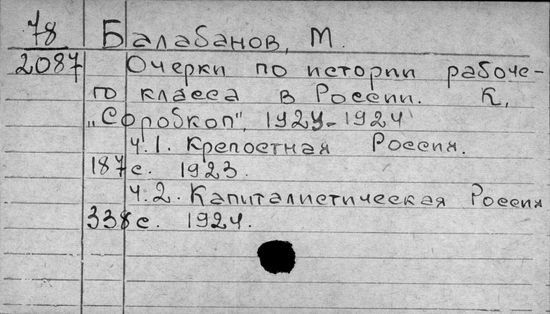 78 Балабанов, М.
2087 Очерки по истории рабоче-
го класса в России. К,
„Соробкоп", 1923-1924
ч.1. Крепостная Россия.
187 с. 1923.
ч.2. Капиталистическая Россия
338 с. 1924.